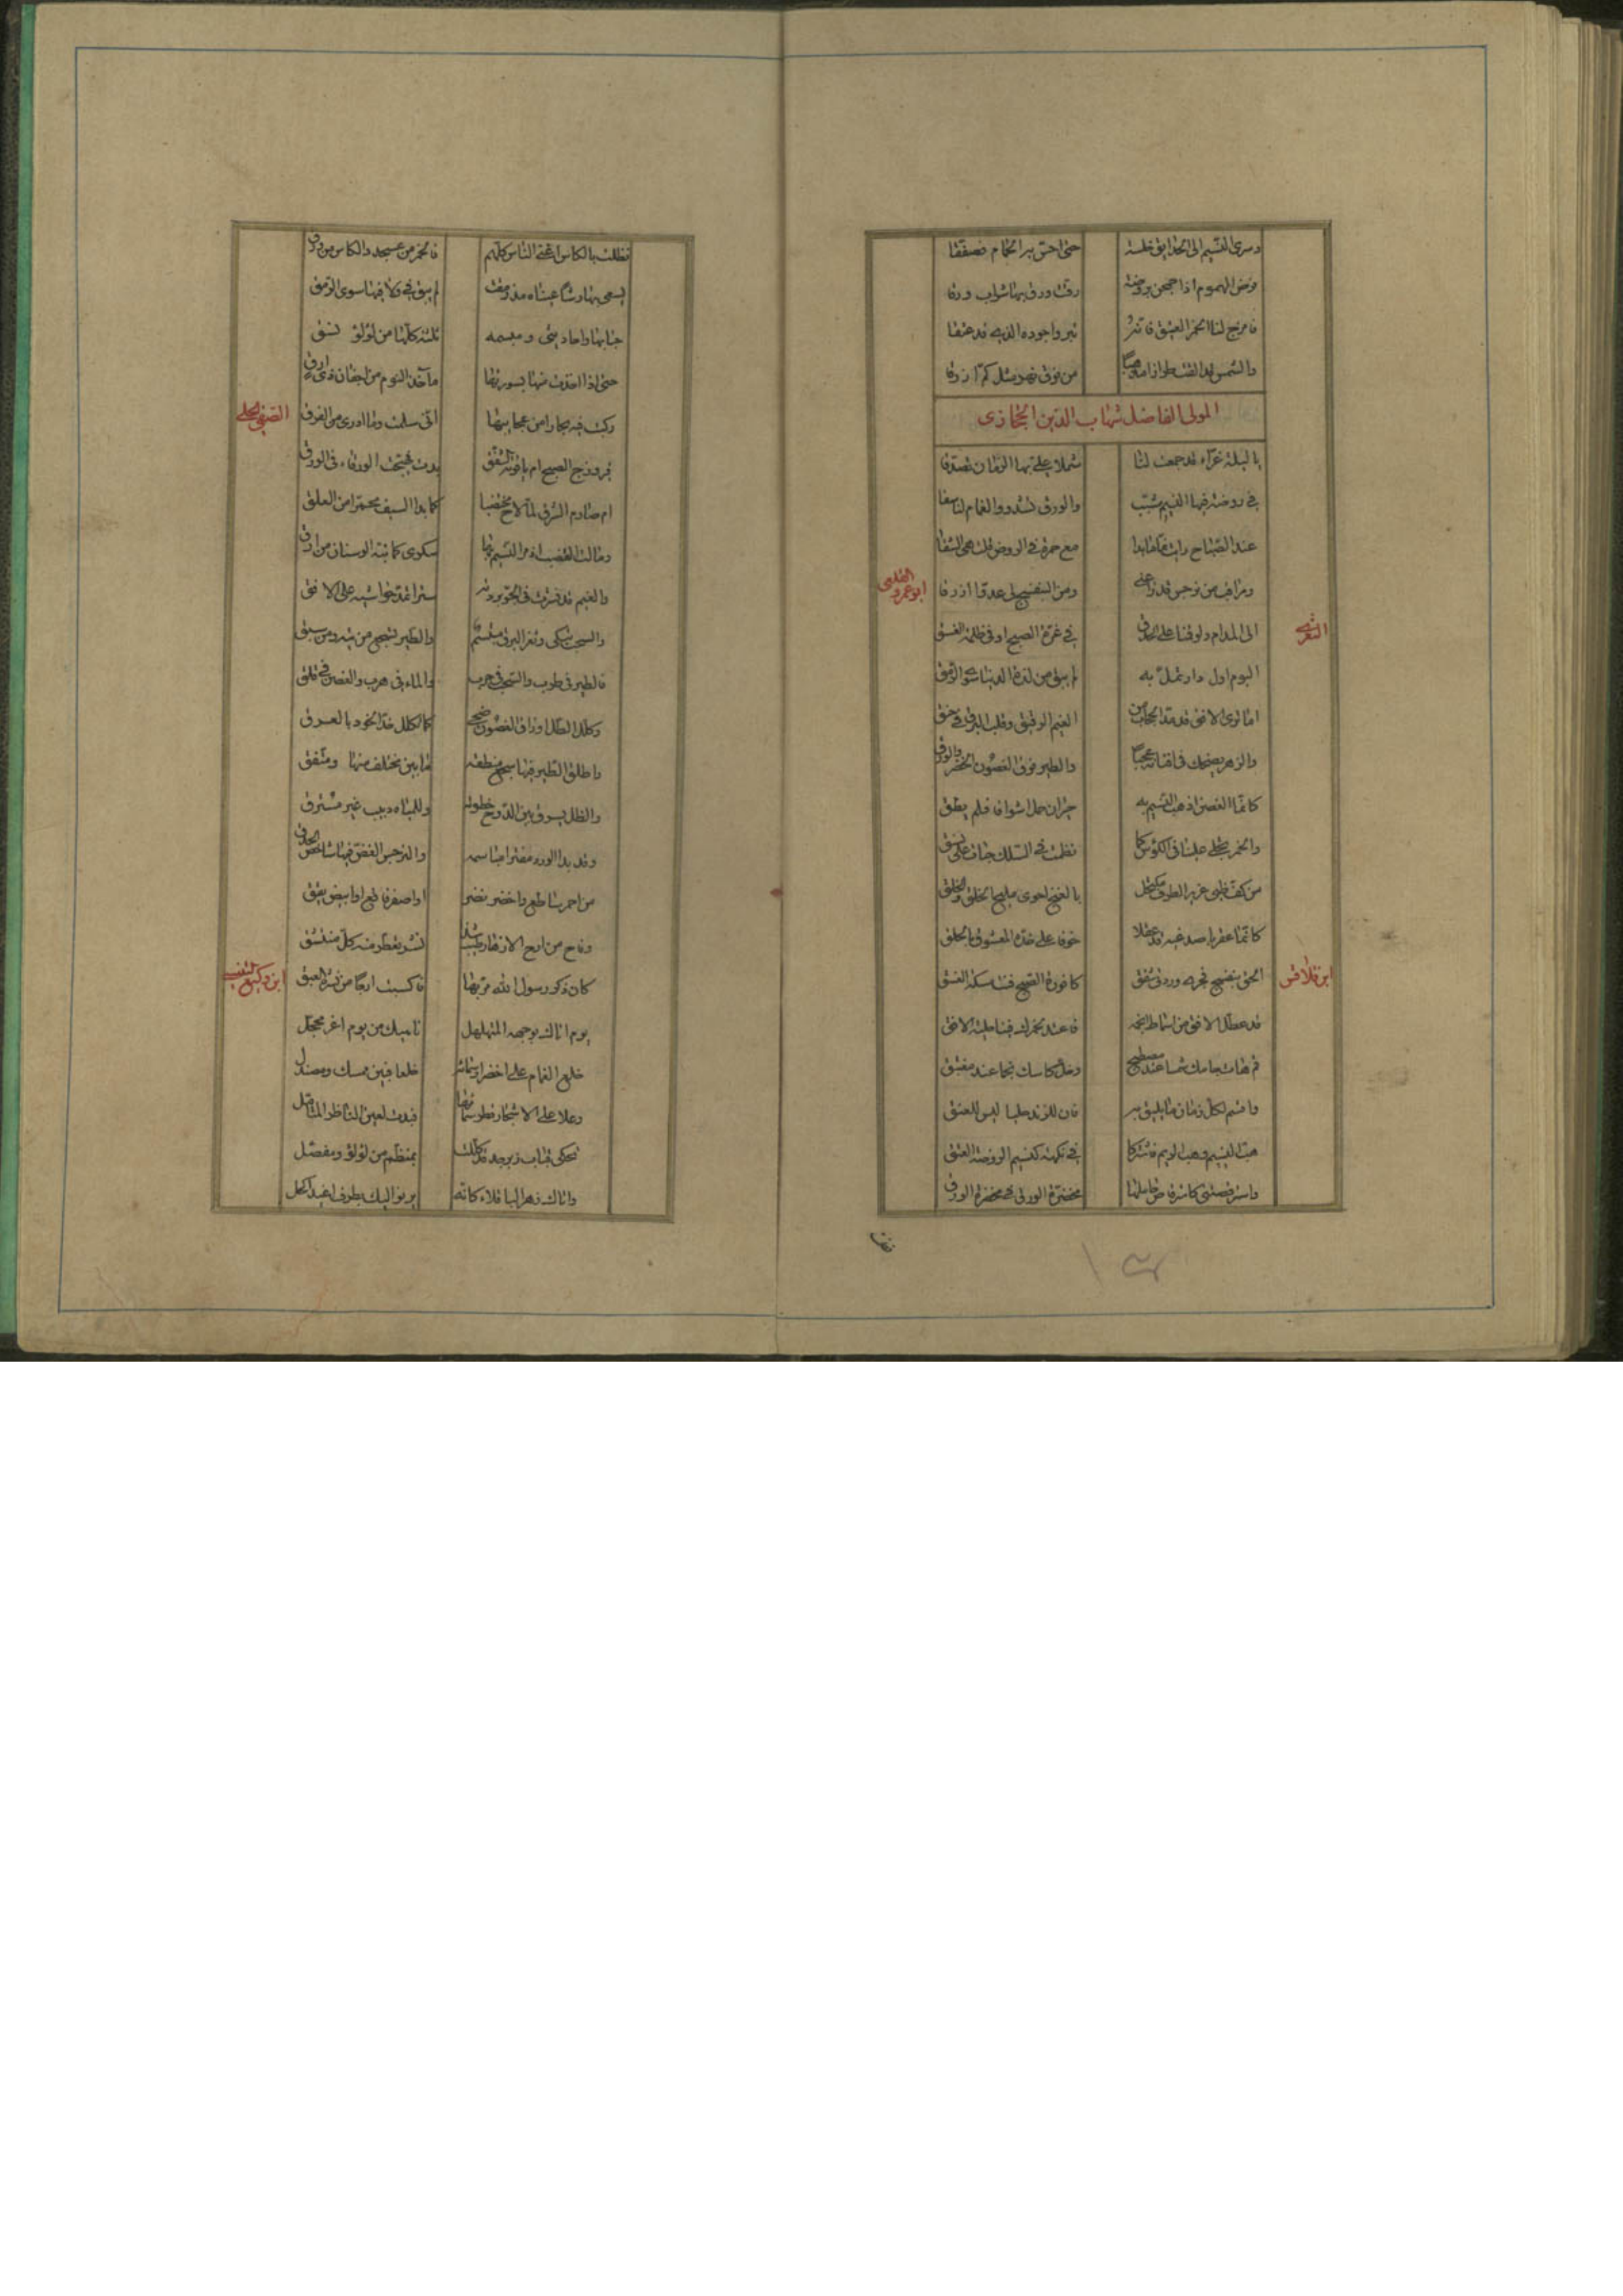 وسرى النسيم الى الحدايق خلسة حتى احس به الحمام فصفقا
وض الهموم اذا جحجن بروضة رقت ورق بها شراب ورقا
فامزج لنا الخمر العتيق فانه تبر واجوده الذى قد عتقا
والشمس قد القت طرازا مذهبا من فوق نهر مثل كم ازرقا
المولى الفاضل شهاب الدين الحجازى
يا ليلة غراء قد جمعت لنا شملا على بها الزمان تصدقا
فى روضة فيها النسيم مشبب والورق تشدو والغمام لنا سقا
عند الصباح رايت ما بدا مع حمرة فى الروض قلت هى الشقا
من نرجس قد زانه ومن البنفسج لى عدوا ازرقا
ابو عمرو القلعى
الى المدام ولو فتنا على الحدق فى غرة الصبح او فى ظلمة الغسق
اليوم اول دار تمل به لم يبق من لذة الدنيا سوى الرمق
اما ترى الافق قد مد الحجاب من الغيم الرقيق وقلب البرق فى خفق
والزهر يضحك فى افنانه عجبا والطير فوق الغصون الخضر والورق
كانما الغصن اذ هب النسيم به حيران حمل اشواقا فلم يطق
والخمر تجلى علينا فى الكؤس كما نظمت فى السلك حبات على نسق
من كف ظبى غرير الطرف مكتحل بالغنج احوى مليح الخلق والخلق
كانما عقربا صدغيه قد جعلا خوفا على خده المعشوق بالحلق
ابن قلاقس
الحق بنفسج فجرى وردتى شفق كافورة الصبح فتت مسكة الغسق
قد عطل الافق من اسماط انجمه فاعقد بخمرك فينا حلية الافق
قم هات جامك شمسا عند مصطبح وخل كاسك نجما عند مغتبق
واقسم لكل زمان ما يليق به فان للزند حليا ليس للعنق
هب النسيم وهب الريم فاشتركا فى نكهة كنسيم الروضة العبق
واسترقصتنى كاسترقاص حاملها مخضرة الورق فى مخضرة الورق
فظلت بالكاس اغنى الناس كلهم فالخمر من عسجد والكاس من ورق
يسعى بها رشا عيناه مذ رمقت لم يبق فى ولا فيها سوى الرمق
حبابها واحاديثى ومبسمه ثلثة كلها من لؤلؤ نسق
حتى اذا اخذت منها بسورتها ماخذ النوم من اجفان ذى ارق
ركبت فيه بحارا من عجايبها انى سلمت وما ادرى من الغرق
الصفى الحلى
فيروزج الصبح ام ياقوتة الشفق بدت فهيجت الورقاء فى الورق
ام صارم الشرق لما لاح مختضبا كما بدا السيف محمرا من العلق
ومالت القضب اذ مر النسيم بها سكرى كما نبه الوسنان من ارق
والغيم قد نشرت فى الجو بردته سترا تمد حواشيه على الافق
والسحب تبكى وثغر البرق مبتسم والطير تسجع من تيه ومن سبق
فالطير فى طرب والسحب فى حرب والماء فى هرب والغصن فى قلق
وكلل الطل اوراق الغصون ضحى كما تكلل خد الخود بالعرق
واطلق الطير فيها سجع منطقه ما بين مختلف منها ومتفق
والظل يسرق بين الدوح خطوته وللمياه دبيب غير مسترق
وقد بدا الورد مفترا مباسمه والنرجس الغض فيها شاخص الحدق
من احمر ساطع واخضر نضر او اصفر فاقع او ابيض يقق
وفاح من ارج الازهار طيب شذا نشر تعطر منه كل منتشق
كان ذكر رسول الله مر بها فاكسبت ارجا من نشره العبق
ابن وكيع التنيسى
يوم اتاك بوجهه المتهلهل ناهيك من يوم اغر محجل
خلع الغمام على اخضرار سمائه خلعا فبين ممسك ومصندل
وعلا على الاشجار قطر سمائها فبدت لعين الناظر المتامل
تحكى قباب زبرجد قد كللت بمنظم من لؤلؤ ومفصل
واتاك زهر الباقلاء كانه يرنو اليك بطرف اغيد اكحل